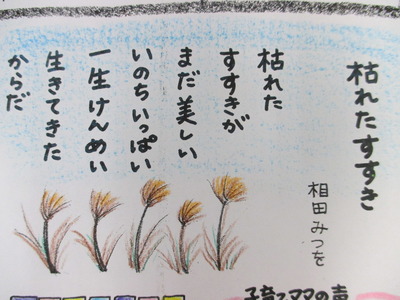 枯れたすすき
相田みつを
枯れた
すすきが
まだ美しい
いのちいっぱい
一生けんめい
生きてきた
からだ
子育てママの声